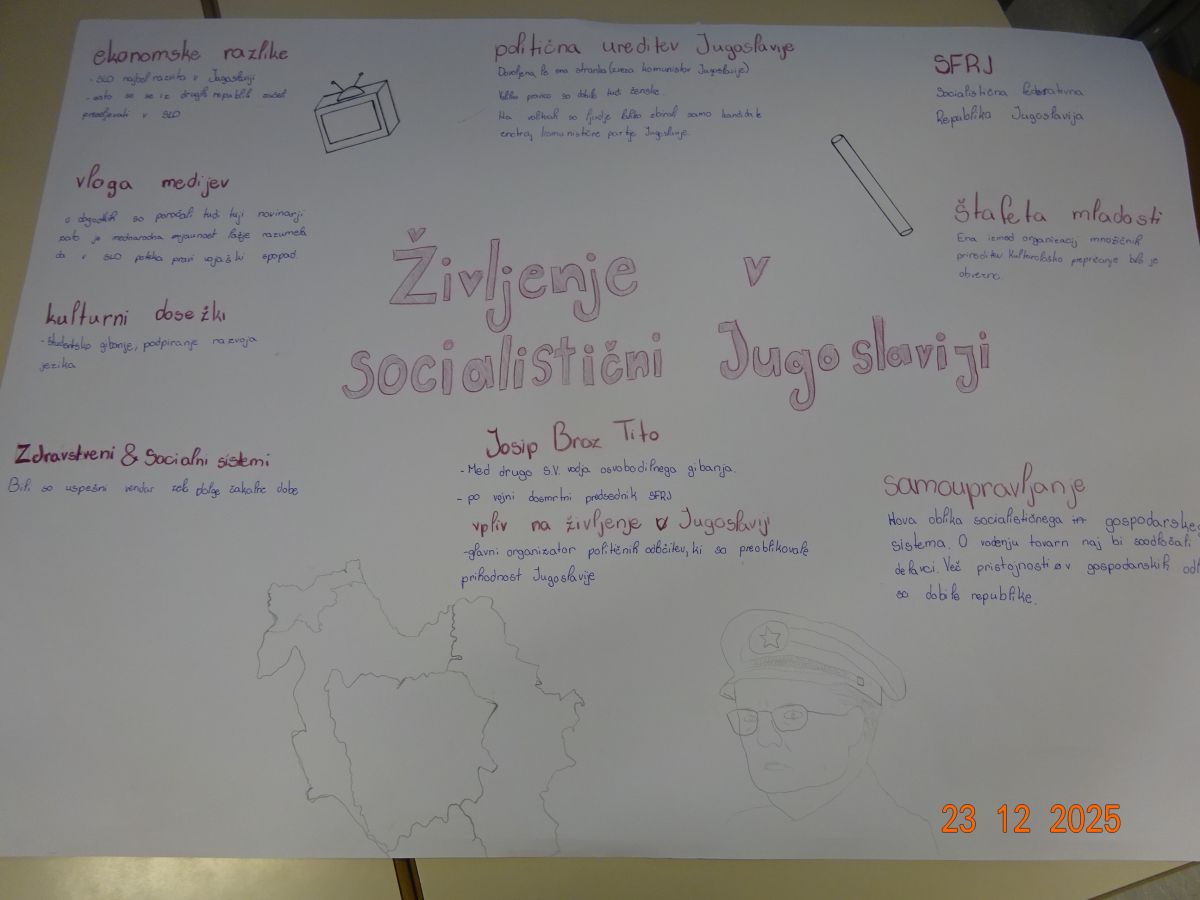 ekonomske razlike
- SLO najbolj razvita v Jugoslaviji
- zato so se iz drugih republik začeli
preseljevati v SLO
politična ureditev Jugoslavije
Dovoljena le ena stranka (zveza komunistov Jugoslavije)
Volilno pravico so dobile tudi ženske.
Na volitvah so ljudje lahko zbirali samo kandidate
znotraj komunistične partije Jugoslavije.
SFRJ
Socialistična federativna
Republika Jugoslavija
vloga medijev
o dogodkih so poročali tudi tuji novinarji
zato je mednarodna javnost lažje razumela
da v SLO poteka pravi vojaški spopad.
Štafeta mladosti
Ena izmed organizacij množičnih
prireditev. Kulturološko prepričanje bilo je
obvezno.
kulturni dosežki
- študentsko gibanje, podpiranje razvoja
jezika
Življenje v
socialistični Jugoslaviji
Zdravstveni & Socialni sistemi
Bili so uspešni vendar zelo dolge čakalne dobe
Josip Broz Tito
- Med drugo s.v. vodja osvobodilnega gibanja.
- po vojni dosmrtni predsednik SFRJ
vpliv na življenje v Jugoslaviji
- glavni organizator političnih odločitev, ki so preoblikovale
prihodnost Jugoslavije
samoupravljanje
Nova oblika socialističnega gospodarskeg
sistema. O vodenju tovarn naj bi soodločali
delavci. Več pristojnosti v gospodarskih odl
so dobile republike.
23 12 2025